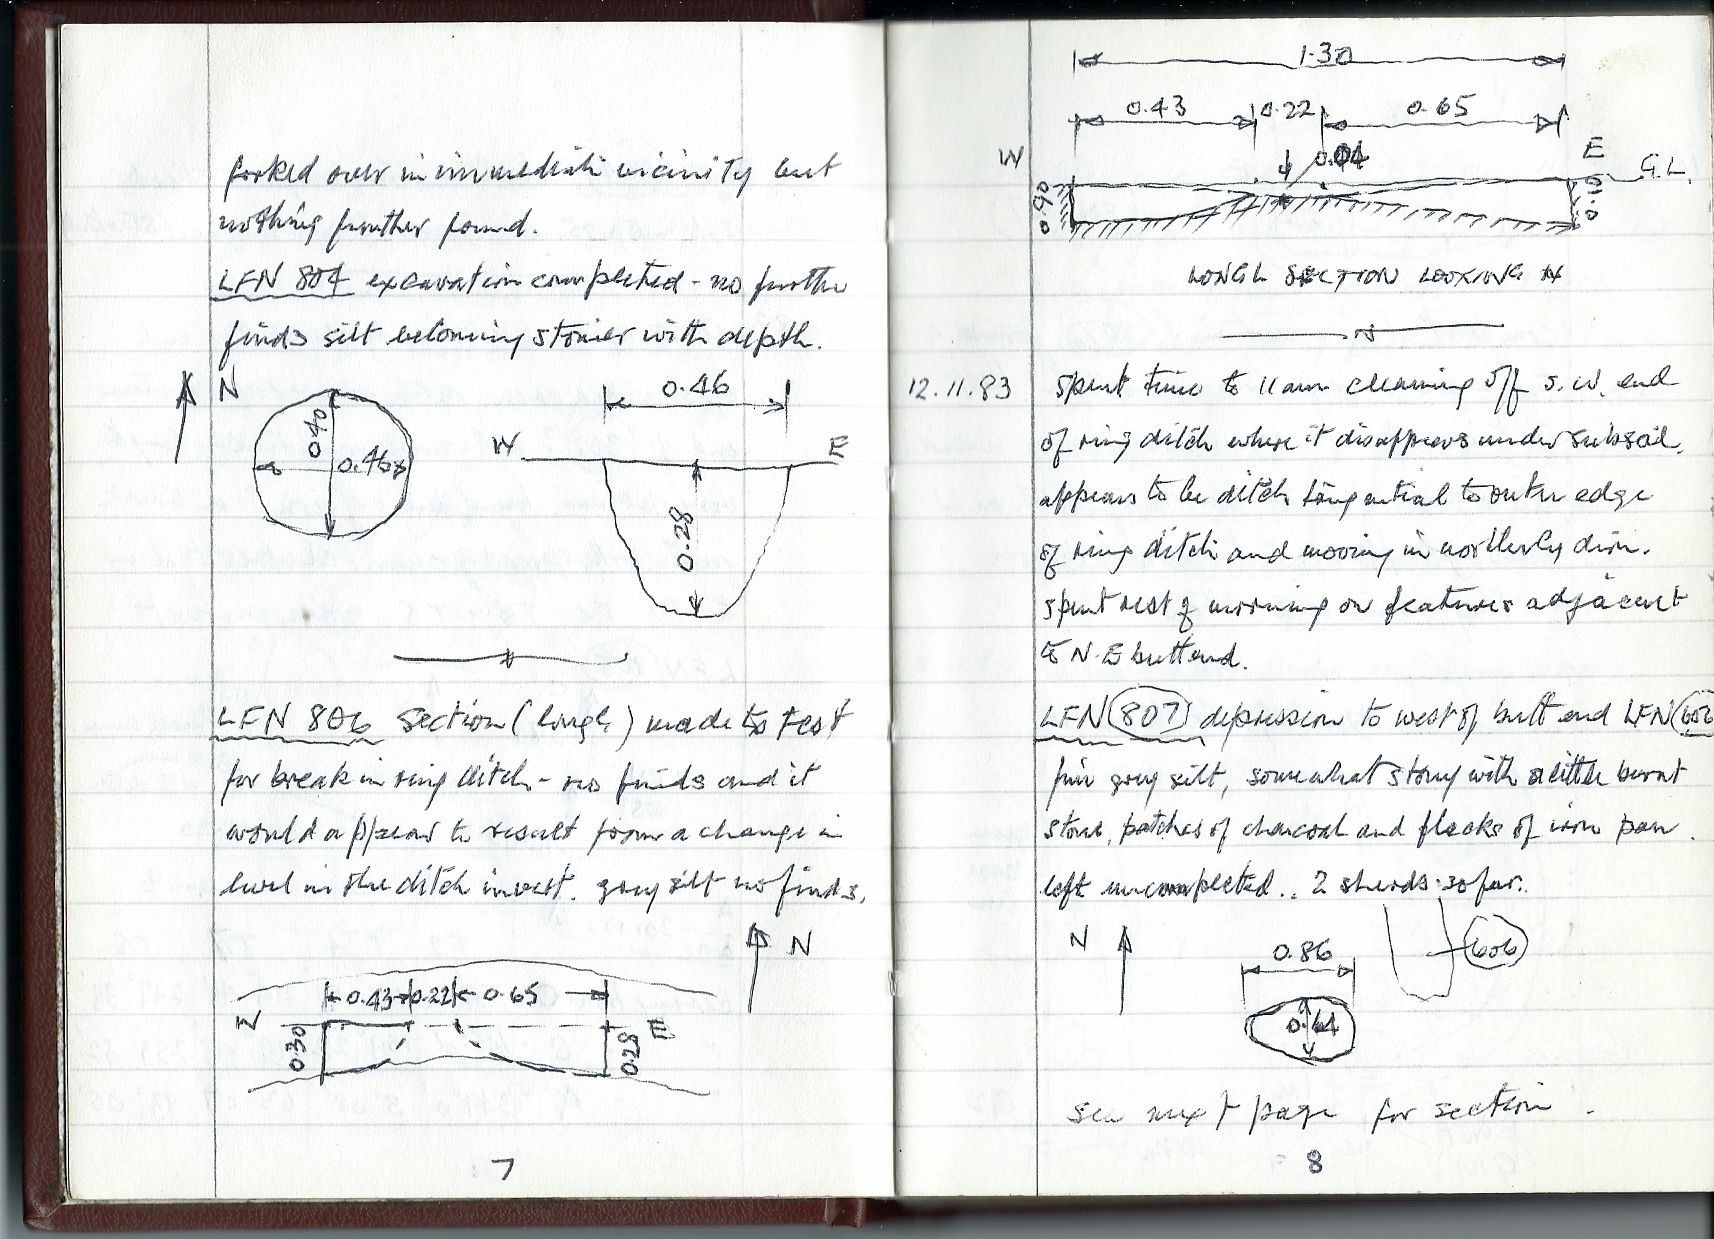 forked over in immediate vicinity but
nothing further found.
LFN 804 excavation completed - no further
finds silt becoming stonier with depth.
N
0.40
0.46
0.46
W E
0.28
LFN 806 section (longl.) made to test
for break in ring ditch - no finds and it
would appear to result from a change in
level in the ditch invert. grey silt no finds.
N
0.43 0.22 0.65
W E
0.30 0.28
7
1.30
0.43 0.22 0.65
W E G.L.
0.04
LONGL SECTION LOOKING N
12.11.83 Spent time to 11am cleaning off S.W. end
of ring ditch where it disappears under subsoil.
appears to be ditch tangential to outer edge
of ring ditch and moving in northerly dirn.
spent rest of morning on features adjacent
to N.E butt end.
LFN 807 depression to west of butt end LFN 606
fine grey silt, somewhat stony with a little burnt
stone, patches of charcoal and flecks of iron pan.
left uncompleted.. 2 sherds so far.
N
0.86
606
0.64
see next page for section.
8